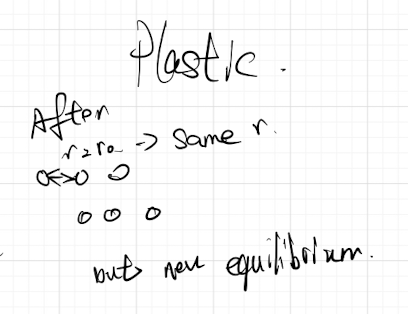 Plastic.
After
r=r₀ -> same r.
but new equilibrium.